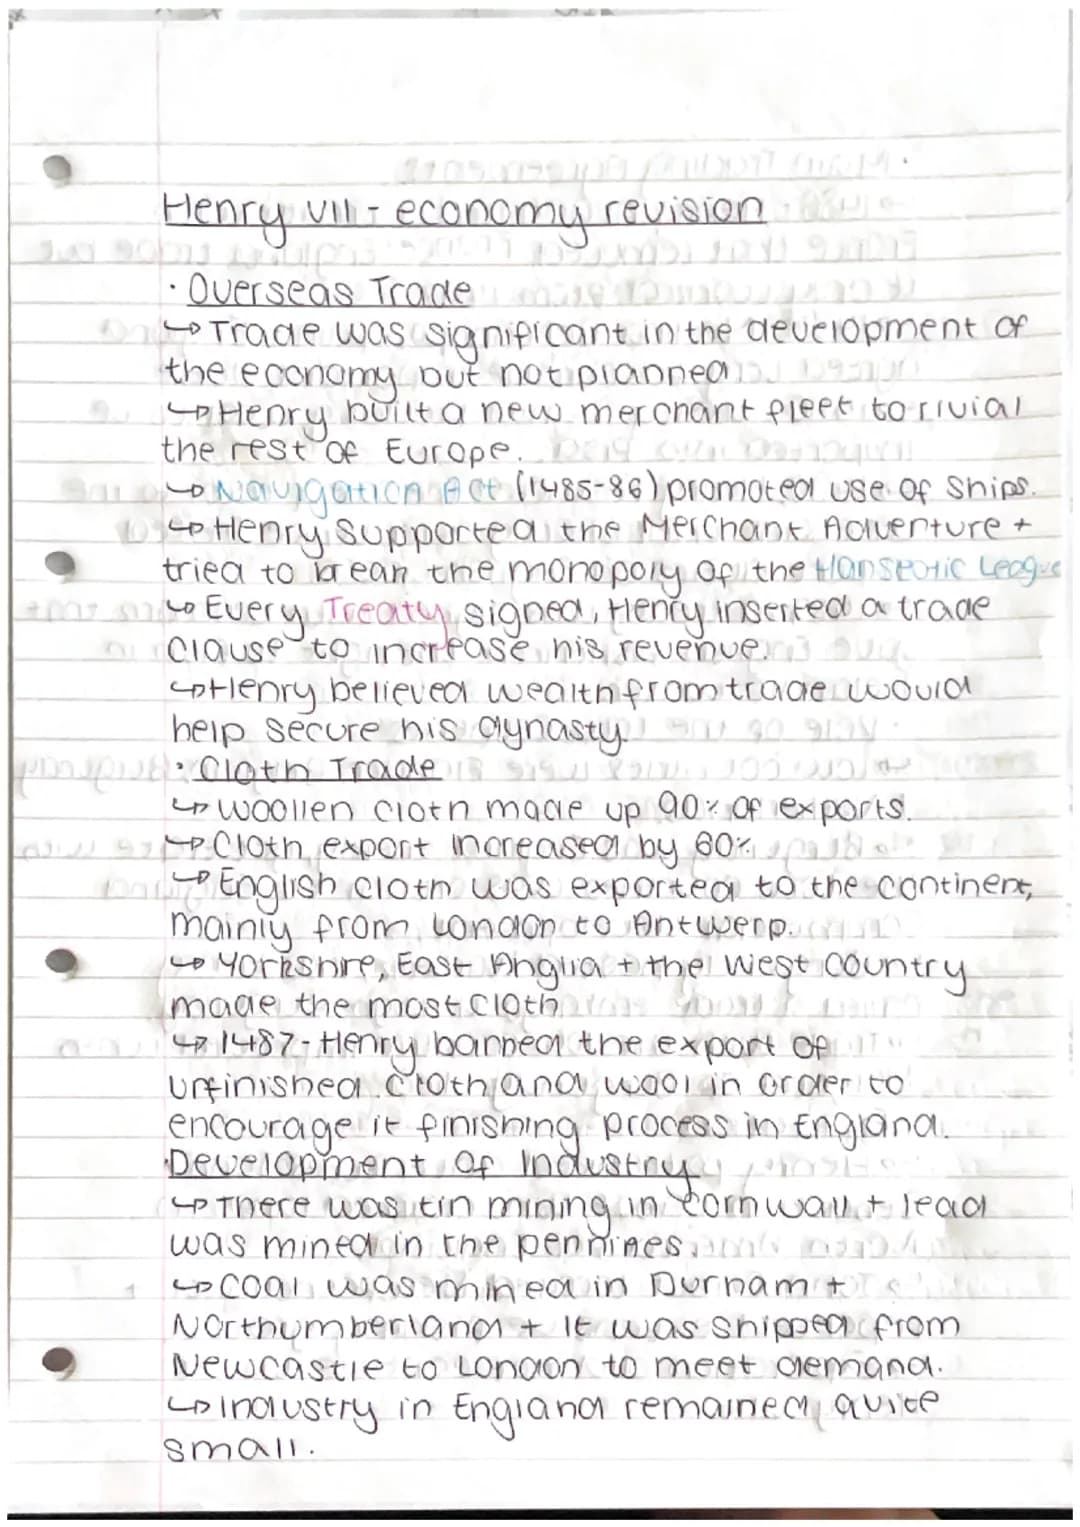 Henry VII - economy revision
· Overseas Trade
↳ Trade was significant in the development of
the economy but not planned
↳ Henry built a new merchant fleet to rivial
the rest of Europe.
↳ Navigation Act (1485-86) promoted use of ships.
↳ Henry supported the Merchant Adventure +
tried to break the monopoly of the Hanseatic League
↳ Every Treaty signed, Henry inserted a trade
clause to increase his revenue.
↳ Henry believed wealth from trade would
help secure his dynasty.
· Cloth Trade
↳ Woollen cloth made up 90% of exports.
↳ Cloth export increased by 60%
↳ English cloth was exported to the continent,
mainly from London to Antwerp.
↳ Yorkshire, East Anglia + the West Country
made the most cloth
↳ 1487 - Henry banned the export of
unfinished cloth and wool in order to
encourage it finishing process in England.
· Development of Industry
↳ There was tin mining in Cornwall + lead
was mined in the pennines.
↳ Coal was mined in Durham +
Northumberland + It was shipped from
Newcastle to London to meet demand.
↳ Industry in England remained quite
small.